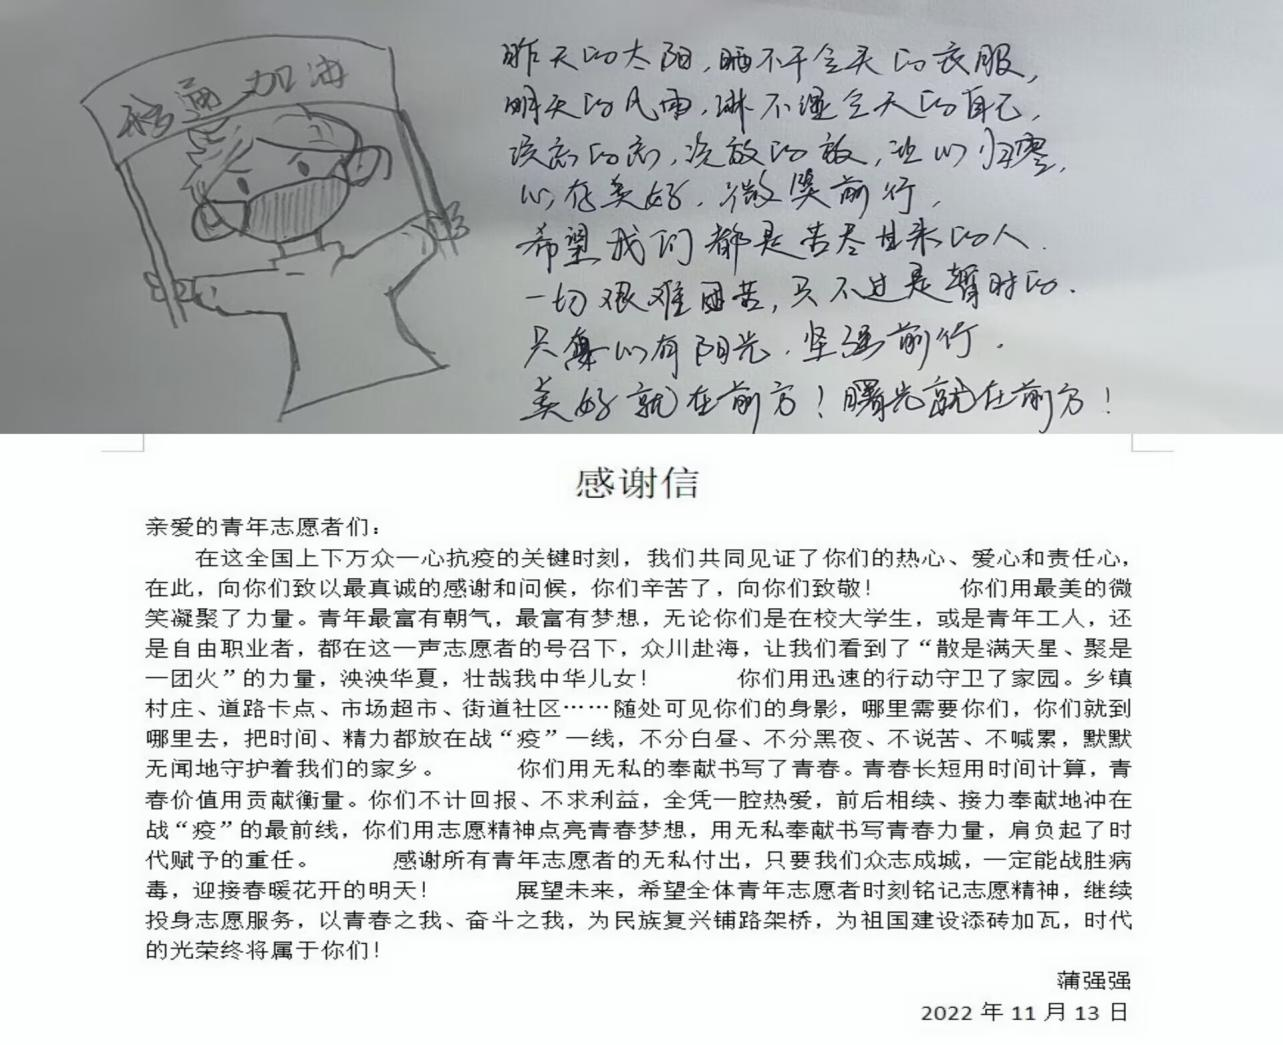 交通加油
昨天的太阳,晒不干今天的衣服,
明天的风雨,淋不湿今天的自己,
该忘的忘,该放的放,让心归零,
心存美好,微笑前行,
希望我们都是苦尽甘来的人.
一切艰难困苦,只不过是暂时的.
只要心有阳光,坚强前行.
美好就在前方!曙光就在前方!
感谢信
亲爱的青年志愿者们:
在这全国上下万众一心抗疫的关键时刻,我们共同见证了你们的热心、爱心和责任心,
在此,向你们致以最真诚的感谢和问候,你们辛苦了,向你们致敬! 你们用最美的微
笑凝聚了力量。青年最富有朝气,最富有梦想,无论你们是在校大学生,或是青年工人,还
是自由职业者,都在这一声志愿者的号召下,众川赴海,让我们看到了“散是满天星、聚是
一团火”的力量,泱泱华夏,壮哉我中华儿女! 你们用迅速的行动守卫了家园。乡镇
村庄、道路卡点、市场超市、街道社区……随处可见你们的身影,哪里需要你们,你们就到
哪里去,把时间、精力都放在战“疫”一线,不分白昼、不分黑夜、不说苦、不喊累,默默
无闻地守护着我们的家乡。 你们用无私的奉献书写了青春。青春长短用时间计算,青
春价值用贡献衡量。你们不计回报、不求利益,全凭一腔热爱,前后相续、接力奉献地冲在
战“疫”的最前线,你们用志愿精神点亮青春梦想,用无私奉献书写青春力量,肩负起了时
代赋予的重任。 感谢所有青年志愿者的无私付出,只要我们众志成城,一定能战胜病
毒,迎接春暖花开的明天! 展望未来,希望全体青年志愿者时刻铭记志愿精神,继续
投身志愿服务,以青春之我、奋斗之我,为民族复兴铺路架桥,为祖国建设添砖加瓦,时代
的光荣终将属于你们!
蒲强强
2022 年 11 月 13 日